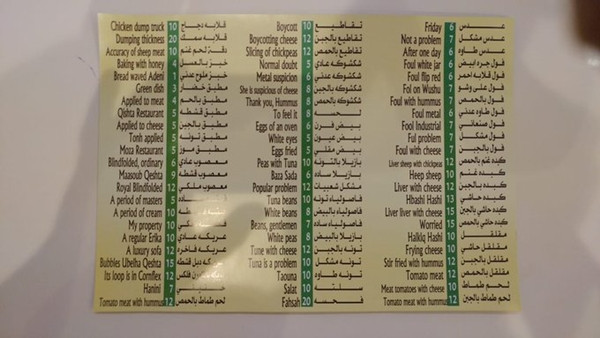 Chicken dump truck 10 قلابه دجاج
Dumping thickness 20 قلابه سمك
Accuracy of sheep meat 10 لحم غنم
Baking with honey 4 خبز بالعسل
Bread waved Adeni 1 خبز ملوح عدني
Green dish 3 مطبق خضار
Applied to meat 4 مطبق بالحم
Qishta Restaurant 5 مطبق قشطه
Applied to cheese 5 مطبق بالجبن
Tonh applied 5 مطبق تونه
Moza Restaurant 5 مطبق موز
Blindfolded, ordinary 6 معصوب عادي
Maasoub Qeshta 9 معصوب قشطة
Royal Blindfolded 12 معصوب ملكي
A period of masters 5
A period of cream 10
My property 10
A regular Erika 10 عريكه عادي
A luxury sofa 12 عريكه فاخره
Bubbles Ubelha Qeshta 15
Its loop is in Cornflex 12
Hanini 7
Tomato meat with hummus 12 لحم طماط بالحمص
Boycott 10 تقاطيع
Boycotting cheese 12 تقاطيع بالجبن
Slicing of chickpeas 12 تقاطيع بالحمص
Normal doubt 5 شكشوكه عادي
Metal suspicion 6 شكشوكه عدني
She is suspicious of cheese 8 شكشوكه بالجبن
Thank you, Hummus 8 شكشوكه بالحمص
To feel it 8 لحسه
Eggs of an oven 6 بيض فرن
White eyes 5 بيض عيون
Eggs fried 5 بيض مقلي
Peas with Tuna 10 بازيلا بالتونه
Baza Sada 6 بازيلا ساده
Popular problem 12 مشكل شعبيات
Tuna beans 10 فاصولياء تونه
White beans 8 فاصولياء بيض
Beans, gentlemen 7 فاصولياء ساده
White peas 8 بازيلا بالبيض
Tune with cheese 12 تونه بالجبن
Tuna is a problem 10 تونه مشكل
Taouna 10 تونه طاوه
Salat 10 سلته
Fahsah 20 فحسه
Friday 6 عدس
Not a problem 7 عدس مشكل
After one day 6 عدس طاوه
Foul white jar 6 فول جره ابيض
Foul flip red 6 فول قلابه احمر
Fol on Wushu 7 فول علي وقو
Foul with hummus 7 فول بالحمص
Foul metal 6 فول طاوه عدني
Fool Industrial 7 فول صنعاني
Ful problem 7 فول مشكل
Foul with cheese 7 فول بالجبن
Liver sheep with chickpeas 12 كبده غنم بالحمص
Heep sheep 10 كبده غنم
Liver with cheese 12 كبده بالجبن
Hbashi Hashi 13 كبده حاشي
Liver liver with cheese 15 كبده حاشي بالجبن
Worried 15 مقلقل
Halklq Hashi 10 مقلقل حاشي
Frying cheese 10 مقلقل بالجبن
Sür fried with hummus 12 مقلقل بالحمص
Tomato meat 10 لحم طماط
Meat tomatoes with cheese 10
Tomato meat with hummus 12 لحم طماط بالجبن